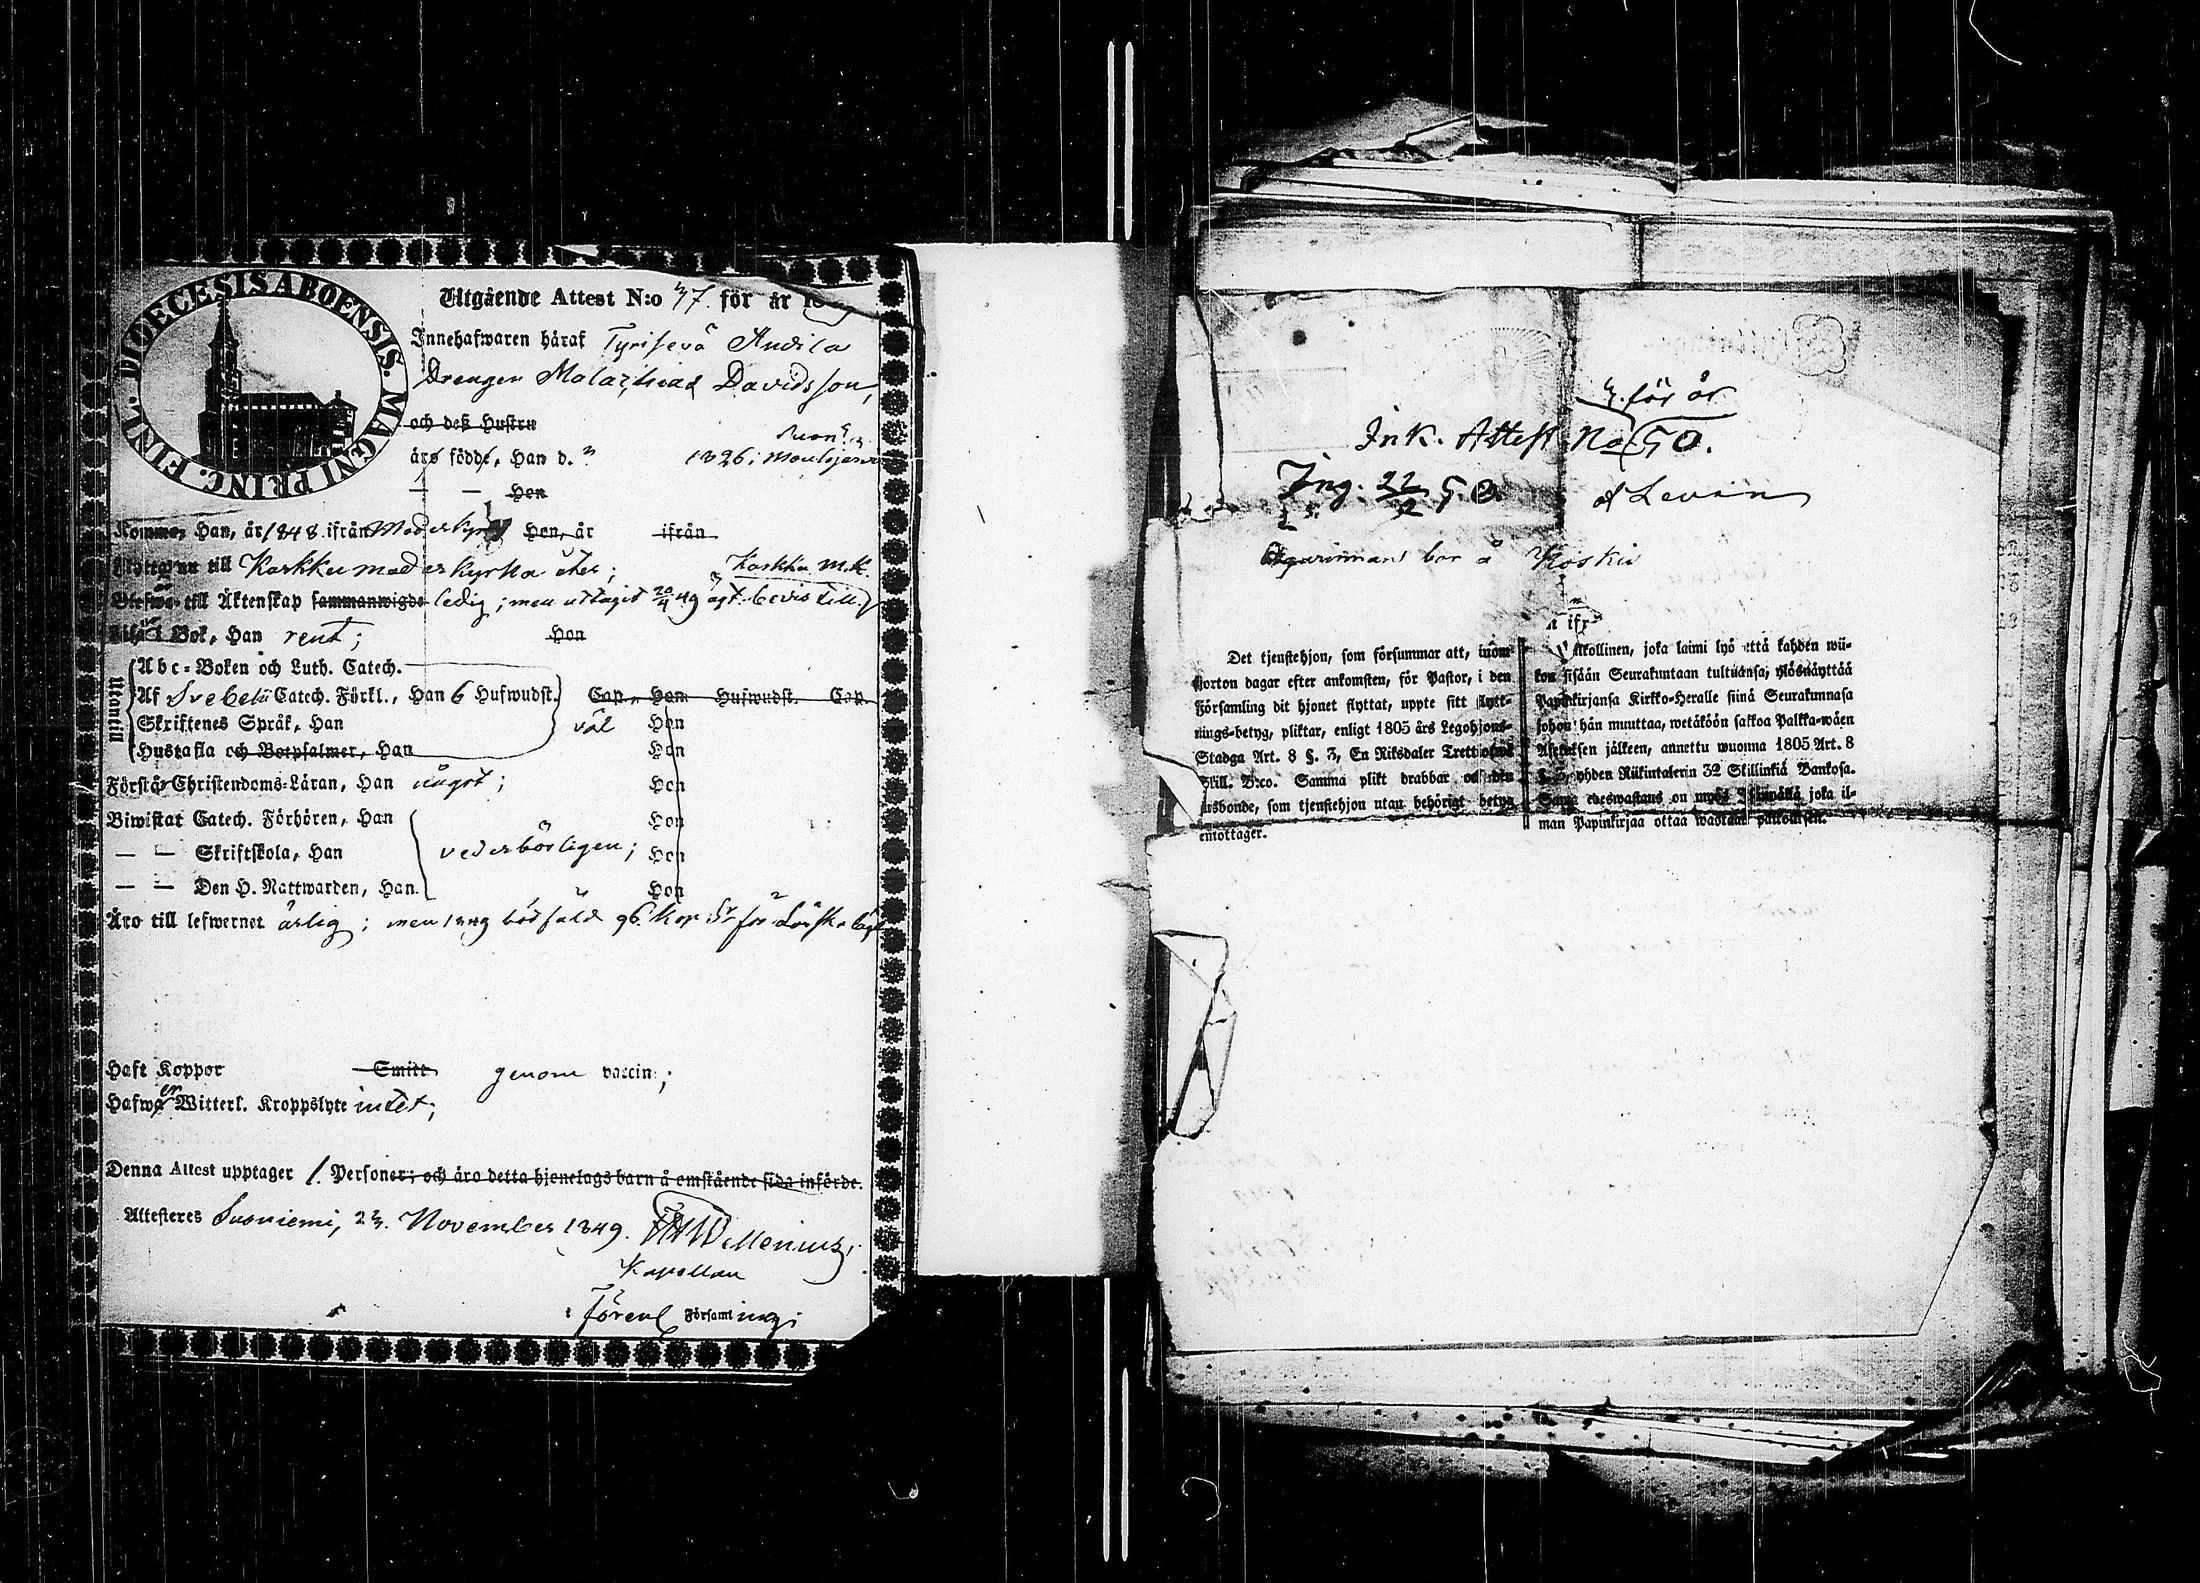 DIOECESIS ABOENSIS. MAGNI PRINC. FINL.
Utgående Attest N:o 37. för år 18
Innehafwaren häraf Tyrisevä Andila
Drengen Malachias Davidsson,
och deß Hustru
äro födde, Han d. 1826 i
— — Hon
Komme, Han, år 1848 ifrån Moderkyrk Hon, år ifrån
till Karkku moderkyrka åter; Karkku m.k.
till Äktenskap sammanwigde ledig; men uttagit 20/4 49 till
i Bok, Han rent; Hon
Utantill
Abc-Boken och Luth. Catech.
Af Svebelii Catech. Förkl., Han 6 Hufwudst. Cap. Hon Hufwudst. Cap.
Skriftenes Språk, Han väl Hon
Hustafla och Botpsalmer, Han Hon
Förstår Christendoms-Läran, Han något; Hon
Biwistat Catech. Förhören, Han Hon
— — Skriftskola, Han vederbörligen; Hon
— — Den H. Nattwarden, Han Hon
Äro till lefwernet ärlig; men 1849 bötfäld 96 Kop. Sr för
Haft Koppor Smitt genom vaccin;
Hafwa Witterl. Kroppslyte intet;
Denna Attest upptager 1. Personer; och äro detta hjonelags barn å omstående sida införde.
Attesteres Suoniemi, 23. November 1849.
Kapellan
i Församling
för år
Ink. Attest No 50.
Ing. 22/2 50. Levin
bor å Koski
ifr
Det tjenstehjon, som försummar att, inom
fjorton dagar efter ankomsten, för Pastor, i den
Församling dit hjonet flyttat, uppte sitt flytt-
nings-betyg, pliktar, enligt 1805 års Legohjons-
Stadga Art. 8 §. 3, En Riksdaler Trettiotwå
Skill. B:co. Samma plikt drabbar och den
husbonde, som tjenstehjon utan behörigt betyg
emottager.
joka laimi lyö että kahden wii-
kon sisään Seurakuntaan tultuansa, ylösnäyttää
Papinkirjansa Kirkko-Heralle siinä Seurakunnasa
johon hän muuttaa, wetäköön sakkoa Palkka-wäen
Asetuksen jälkeen, annettu wuonna 1805 Art. 8
§. 3, yhden Riikintalerin 32 Skillinkiä Bankosa.
Sama edeswastaus on myös joka il-
man Papinkirjaa ottaa